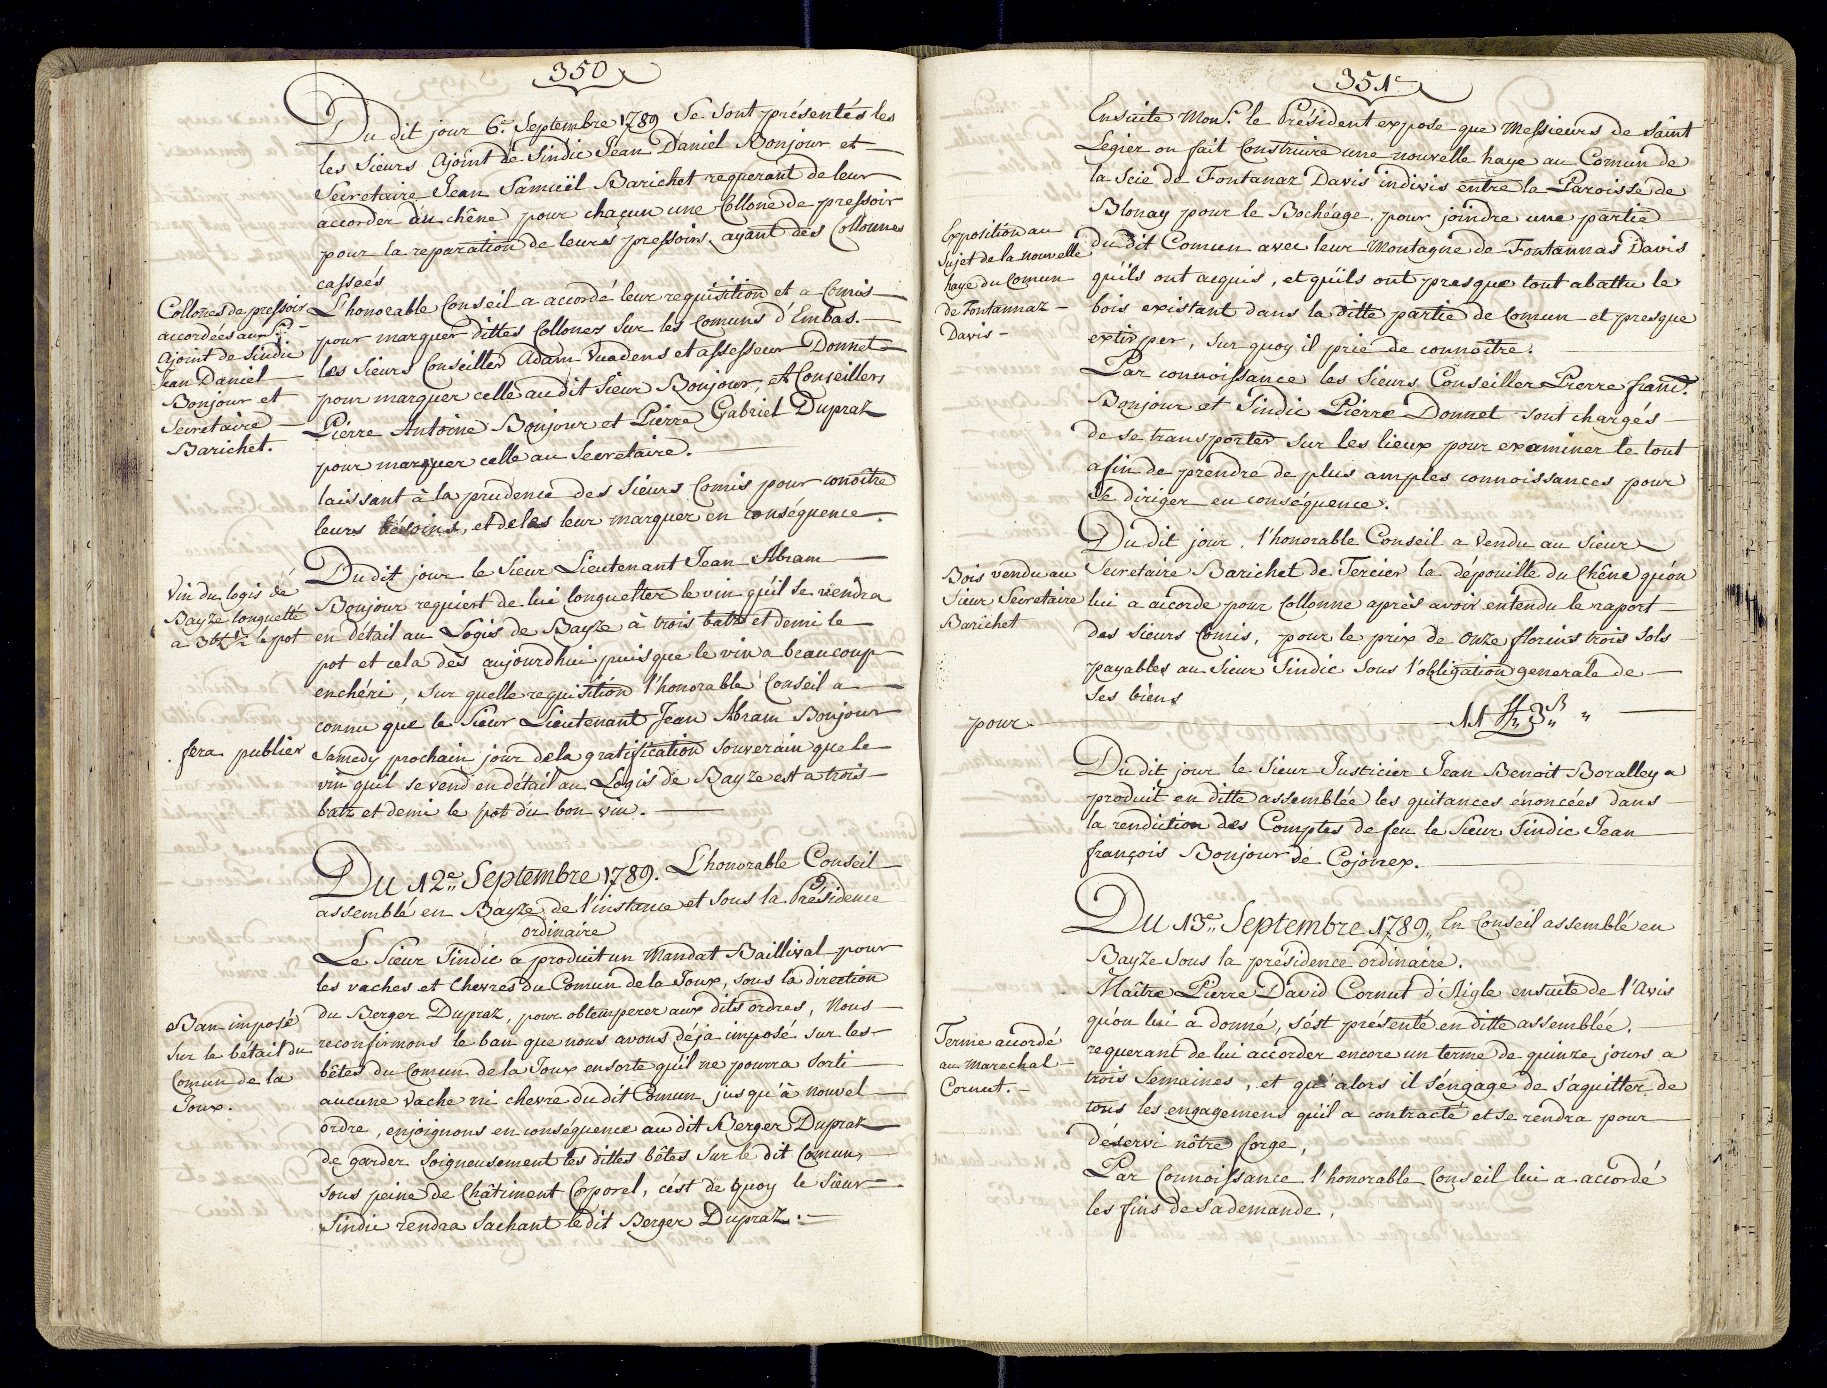 350
Du dit jour 6.e Septembre 1789 Se sont présentés les
les Sieurs Ajoint de Sindic Jean Daniel Bonjour et
Secretaire Jean Samuël Barichet requerant de leur
accorder du chêne pour chacun une Collone de pressoir
pour la reparation de leurs pressoirs ayant des Collonnes
cassées
Collones de pressoir
accordées aux Srs.
Ajoint de Sindic
Jean Daniel
Bonjour et
Secretaire
Barichet.
L'honorable Conseil a accordé leur requisition et a Comis
pour marquer dittes Collones sur les Comuns d'Embas.
les Sieurs Conseiller Adam Vuadens et assesseur Donnet
pour marquer celle au dit Sieur Bonjour, et Conseillers
Pierre Antoine Bonjour et Pierre Gabriel Dupraz
pour marquer celle au Secretaire.
laissant à la prudence des Sieurs Comis pour conoître
leurs bésoins, et de les leur marquer en conséquence.
Vin du logis de
Bayze longuetté
a 3btz½ le pot
Du dit jour le Sieur Lieutenant Jean Abram
Bonjour requiert de lui longuetter le vin qu'il se vendra
en détail au Logis de Bayze à trois batz et demi le
pot et cela dès aujourdhui puisque le vin a beaucoup
enchéri, Sur quelle requisition l'honorable Conseil a
connu que le Sieur Lieutenant Jean Abram Bonjour
fera publier Samedy prochain jour de la gratification Souverain que le
vin qu'il se vend en détail au Logis de Bayze est a trois
batz et demi le pot du bon vin.
Du 12.e Septembre 1789. L'honorable Conseil
assemblé en Bayze de l'instance et sous la Présidence
ordinaire
Le Sieur Sindic a produit un Mandat Baillival pour
les vaches et Chevres du Comun de la Joux, sous la direction
du Berger Dupraz, pour obtemperer aux dits ordres, Nous
Ban imposé
sur le bétail du
Comun de la
Joux.
reconfirmons le ban que nous avons déja imposé sur les
bêtes du Comun de la Joux ensorte qu'il ne pourra sorti
aucune vache ni chevre du dit Comun jusqu'à nouvel
ordre, enjoignons en conséquence au dit Berger Dupraz
de garder soigneusement les dittes bêtes sur le dit Comun,
sous peine de Châtiment Corporel, c'ést de quoy le Sieur
Sindic rendra Sachant le dit Berger Dupraz.
351
Ensuite Mons.r le Président expose que Messieurs de Saint
Legier on fait Construire une nouvelle haye au Comun de
la Scie de Fontanaz Davis indivis entre la Paroisse de
Blonay pour le Bochéage, pour joindre une partie
Exposition au
Sujet de la nouvelle
haye du Comun
de Fontannaz
Davis
du dit Comun avec leur Montagne de Fontannas Davis
qu'ils ont acquis, et qu'ils ont presque tout abattu le
bois existant dans la ditte partie de Comun et presque
extirper, sur quoy il prie de connoître.
Par connoissance les Sieurs Conseiller Pierre franc.s
Bonjour et Sindic Pierre Donnet sont chargés
de se transporter sur les lieux pour examiner le tout
afin de prendre de plus amples connoissances pour
se diriger en conséquence.
Bois vendu au
Sieur Secretaire
Barichet
Du dit jour, l'honorable Conseil a Vendu au Sieur
Secretaire Barichet de Tercier la dépouille du Chêne qu'on
lui a accorde pour Collonne après avoir entendu le raport
des Sieurs Comis, pour le prix de onze florins trois sols
payables au Sieur Sindic sous l'obligation generale de
ses biens
pour 11 ff. 3ß „ „
Du dit jour le Sieur Justicier Jean Benoit Boralley a
produit en ditte assemblée les quitances énoncées dans
la rendition des Comptes de feu le Sieur Sindic Jean
françois Bonjour de Cojonex.
Du 13.e Septembre 1789. En Conseil assemblé en
Bayze sous la présidence ordinaire.
Maître Pierre David Cornut d'Aigle ensuite de l'Avis
qu'on lui a donné, s'ést présenté en ditte assemblée,
Terme accordé
au Marechal
Cornut.
requerant de lui accorder encore un terme de quinze jours a
trois Semaines, et qu'alors il s'éngage de s'aquitter de
tous les engagemens qu'il a contracté et se rendra pour
déservi nôtre forge,
Par Connoissance l'honorable Conseil lui a accordé
les fins de sa demande.